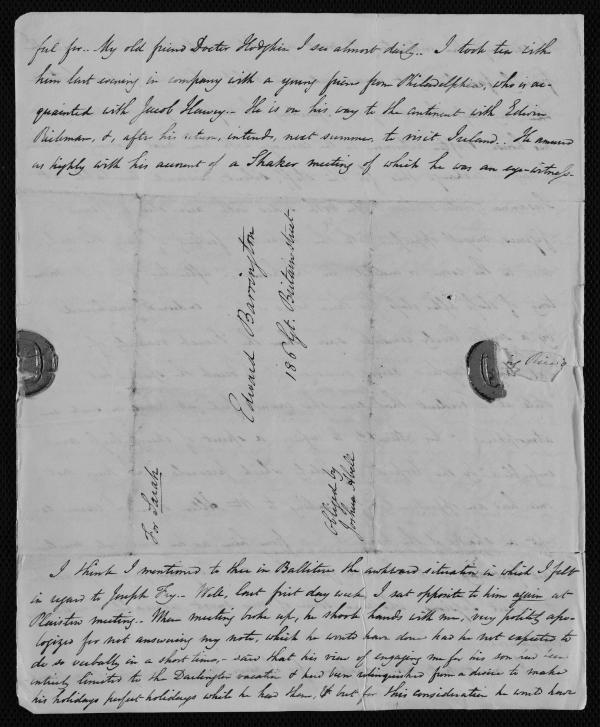 ful for.. My old friend Doctor Hodgkin I see almost daily.. I took tea with
him last evening in company with a young friend from Philadelphia, who is ac-
quainted with Jacob Harvey.- He is on his way to the continent with Edwin
&, after his return, intends, next summer, to visit Ireland.. He amused
us highly with his account of a Shaker meeting of which he was an eye-witness.
Edward Barrington
186 Gt. Britain Street.
For Sarah
Obliged by
Joshua Abell
I think I mentioned to thee in Ballitore the awkward situation in which I felt
in regard to Joseph Fry.- Well, last first day week I sat opposite to him again at
Plaistow meeting.- When meeting broke up, he shook hands with me, very politely apo-
logized for not answering my note, which he would have done had he not expected to
do so verbally in a short time,- said that his view of engaging me for his son had been
entirely limited to the Darlington vacation & had been relinquished from a desire to make
his holidays perfect holidays while he had them, & but for this consideration he would have